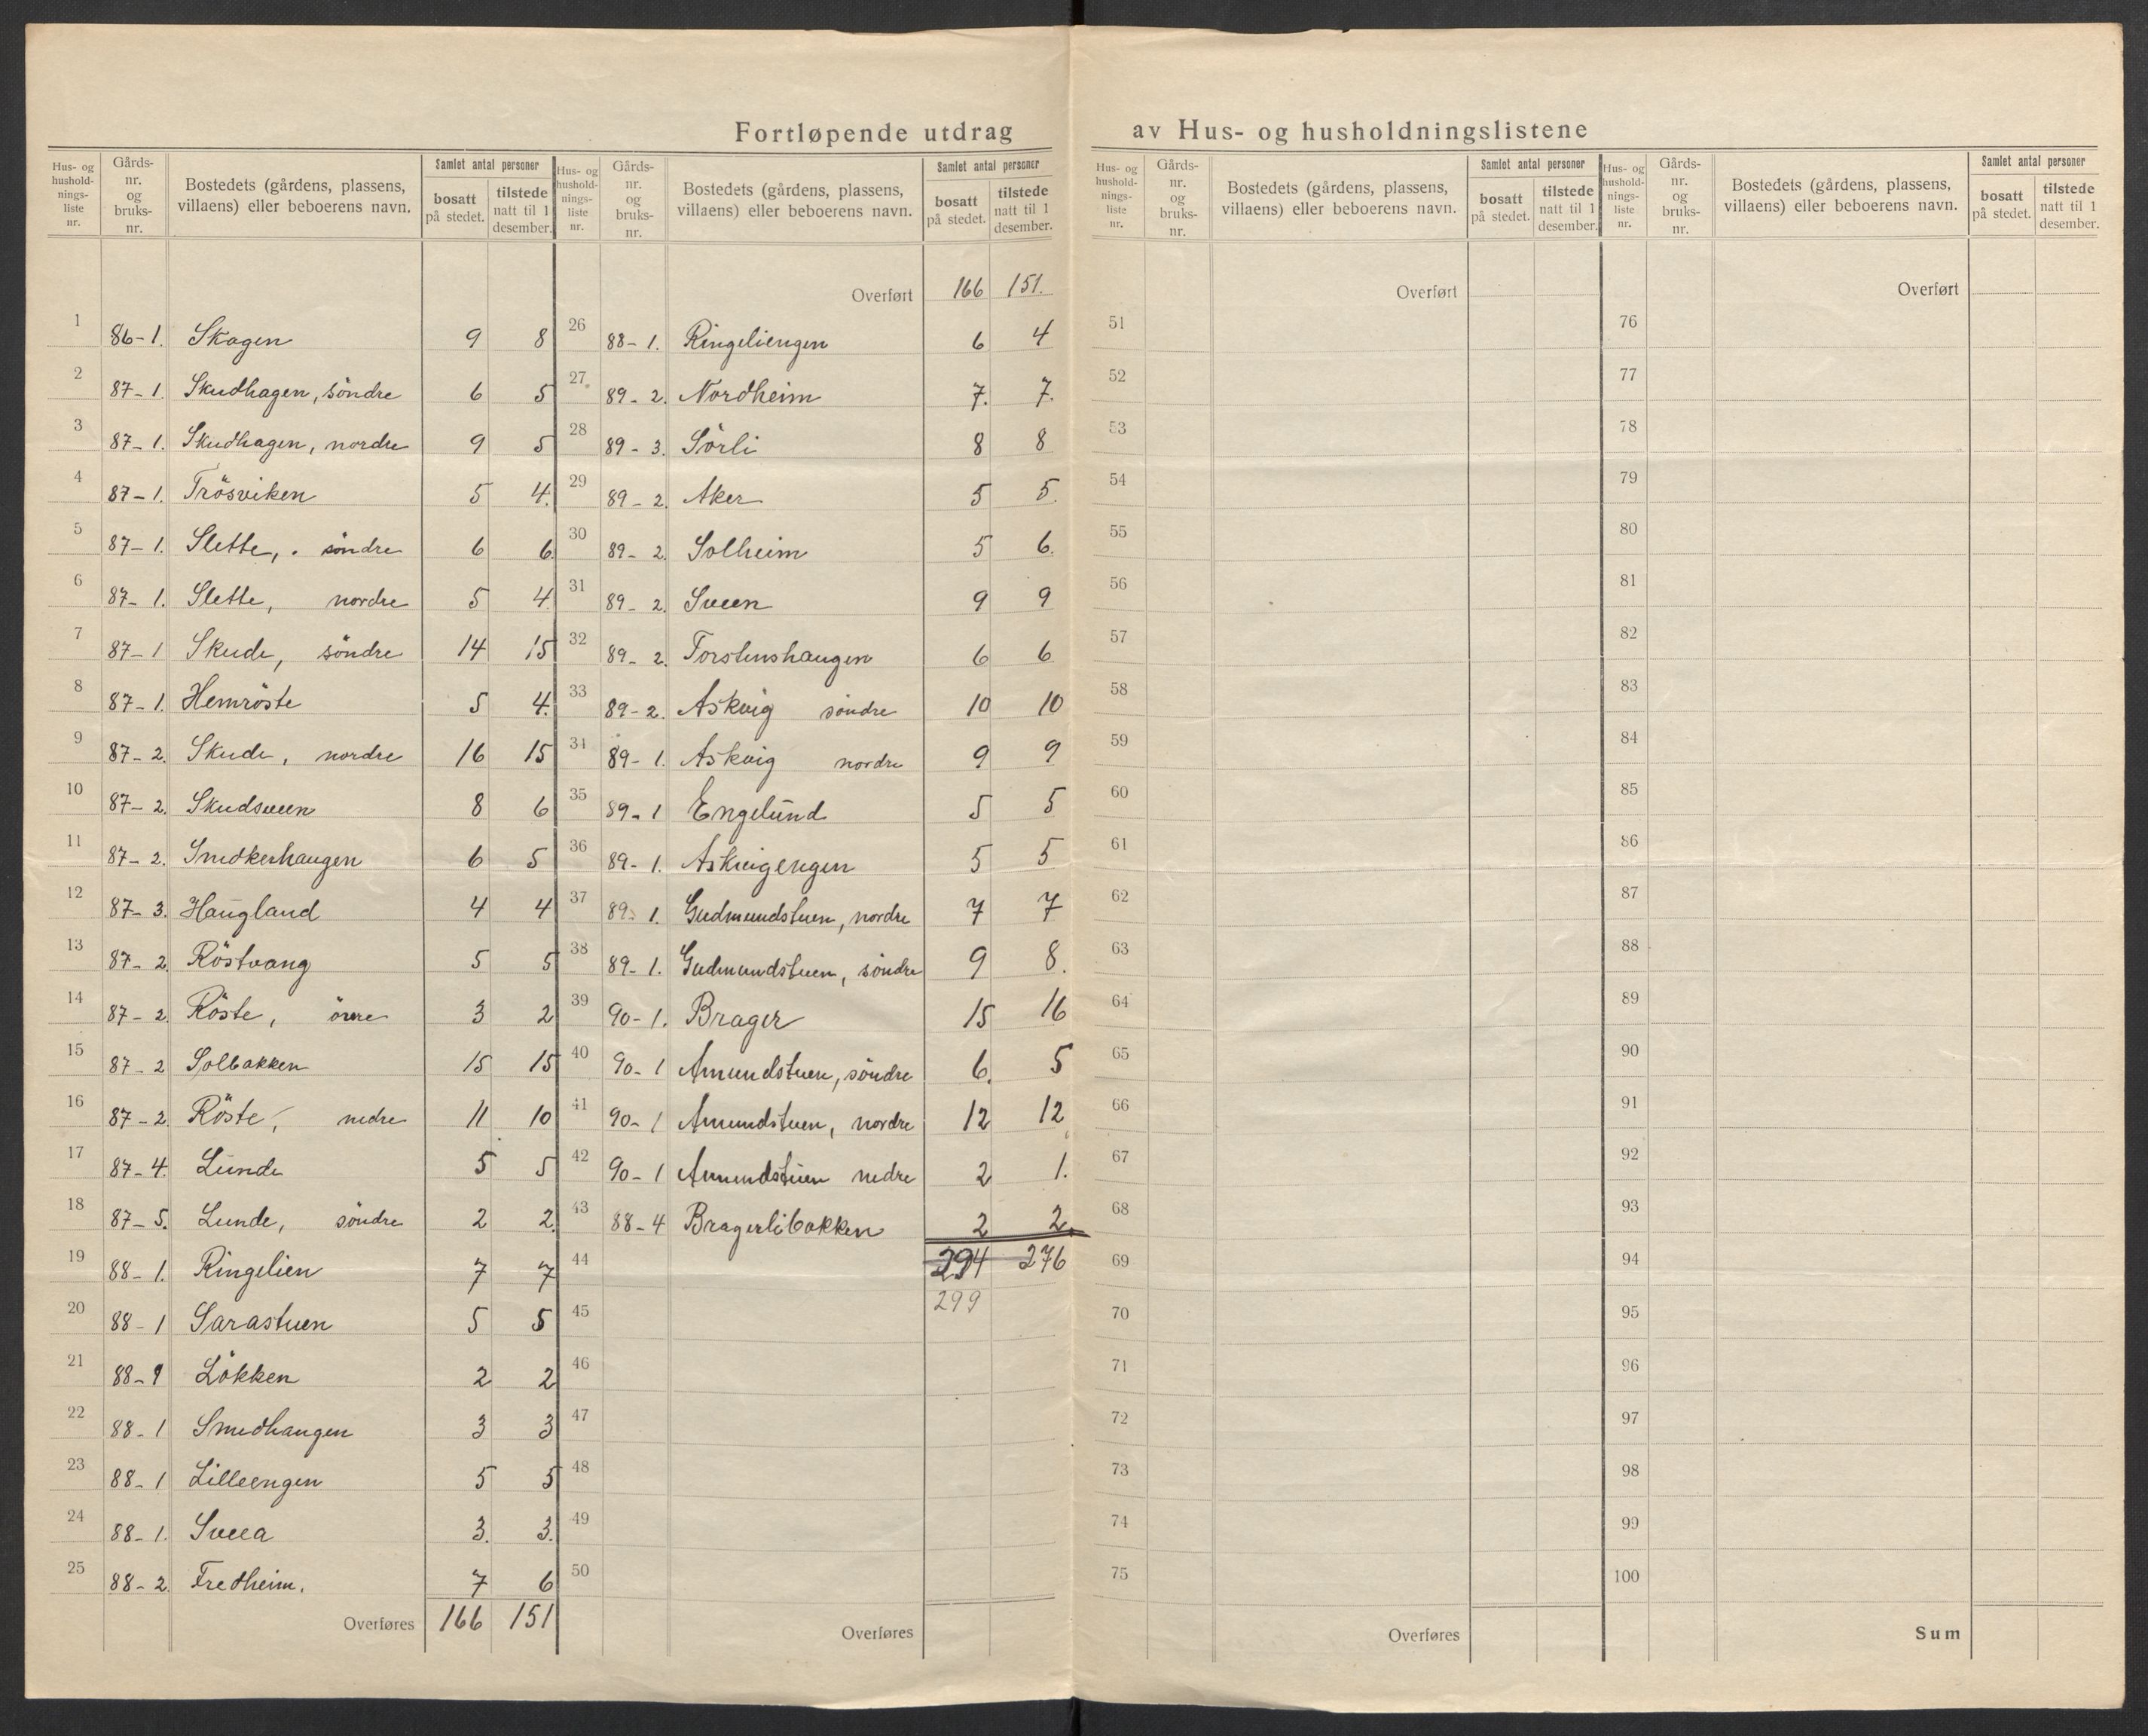 Fortløpende utdrag av Hus- og husholdningslistene
Hus- og hushold-nings-liste nr. | Gårds-nr. og bruks-nr. | Bostedets (gårdens, plassens, villaens) eller beboerens navn. | Samlet antal personer | bosatt på stedet. | tilstede natt til 1 desember.
1 86-1. Skagen 9 8
2 87-1. Skudhagen, söndre 6 5
3 87-1. Skudhagen, nordre 9 5
4 87-1. Trösviken 5 4.
5 87-1. Slette, . söndre 6 6.
6 87-1. Slette, nordre 5 4.
7 87-1 Skude, söndre 14 15
8 87-1. Hemröste 5 4.
9 87-2. Skude, nordre 16 15
10 87-2. Skudsveen 8 6
11 87-2. Smedkerhaugen 6 5
12 87-3. Haugland 4 4
13 87-2. Röstvang 5 5
14 87-2. Röste, övre 3 2
15 87-2 Solbakken 15 15
16 87-2. Röste, nedre 11 10
17 87-4. Lunde 5 5
18 87-5. Lunde, söndre 2 2.
19 88-1. Ringelien 7 7
20 88-1 Sarastuen 5 5
21 88-1 Lökken 2 2
22 88-1 Smedhaugen 3 3
23 88-1 Lilleengen 5 5
24 88-1. Sveea 3. 3.
25 88-2. Fredheim. 7 6
Overføres 166 151
Hus- og hushold-nings-liste nr. | Gårds-nr. og bruks-nr. | Bostedets (gårdens, plassens, villaens) eller beboerens navn. | Samlet antal personer | bosatt på stedet. | tilstede natt til 1 desember.
Overført 166 151.
26 88-1. Ringeliengen 6 4
27 89-2. Nordheim 7. 7.
28 89-3. Sörli 8 8
29 89-2. Aker 5 5.
30 89-2. Solheim 5 6.
31 89-2. Sveen 9 9
32 89-2. Torstenshaugen 6 6
33 89-2. Askvig söndre 10 10
34 89-1. Askvig nordre 9 9
35 89-1 Engelund 5 5
36 89-1. Askvigengen 5 5
37 89-1. Gudmundstuen, nordre 7 7
38 89-1. Gudmundstuen, söndre 9 8.
39 90-1. Brager 15 16
40 90-1 Amundstuen, söndre 6. 5
41 90-1 Amundstuen, nordre 12 12
42 90-1 Amundstuen nedre 2 1.
43 88-4 Bragerlibakken 2 2.
44 294 276
45 299
46
47
48
49
50
Overføres
Hus- og hushold-nings-liste nr. | Gårds-nr. og bruks-nr. | Bostedets (gårdens, plassens, villaens) eller beboerens navn. | Samlet antal personer | bosatt på stedet. | tilstede natt til 1 desember.
Overført
51
52
53
54
55
56
57
58
59
60
61
62
63
64
65
66
67
68
69
70
71
72
73
74
75
Overføres
Hus- og hushold-nings-liste nr. | Gårds-nr. og bruks-nr. | Bostedets (gårdens, plassens, villaens) eller beboerens navn. | Samlet antal personer | bosatt på stedet. | tilstede natt til 1 desember.
Overført
76
77
78
79
80
81
82
83
84
85
86
87
88
89
90
91
92
93
94
95
96
97
98
99
100
Sum